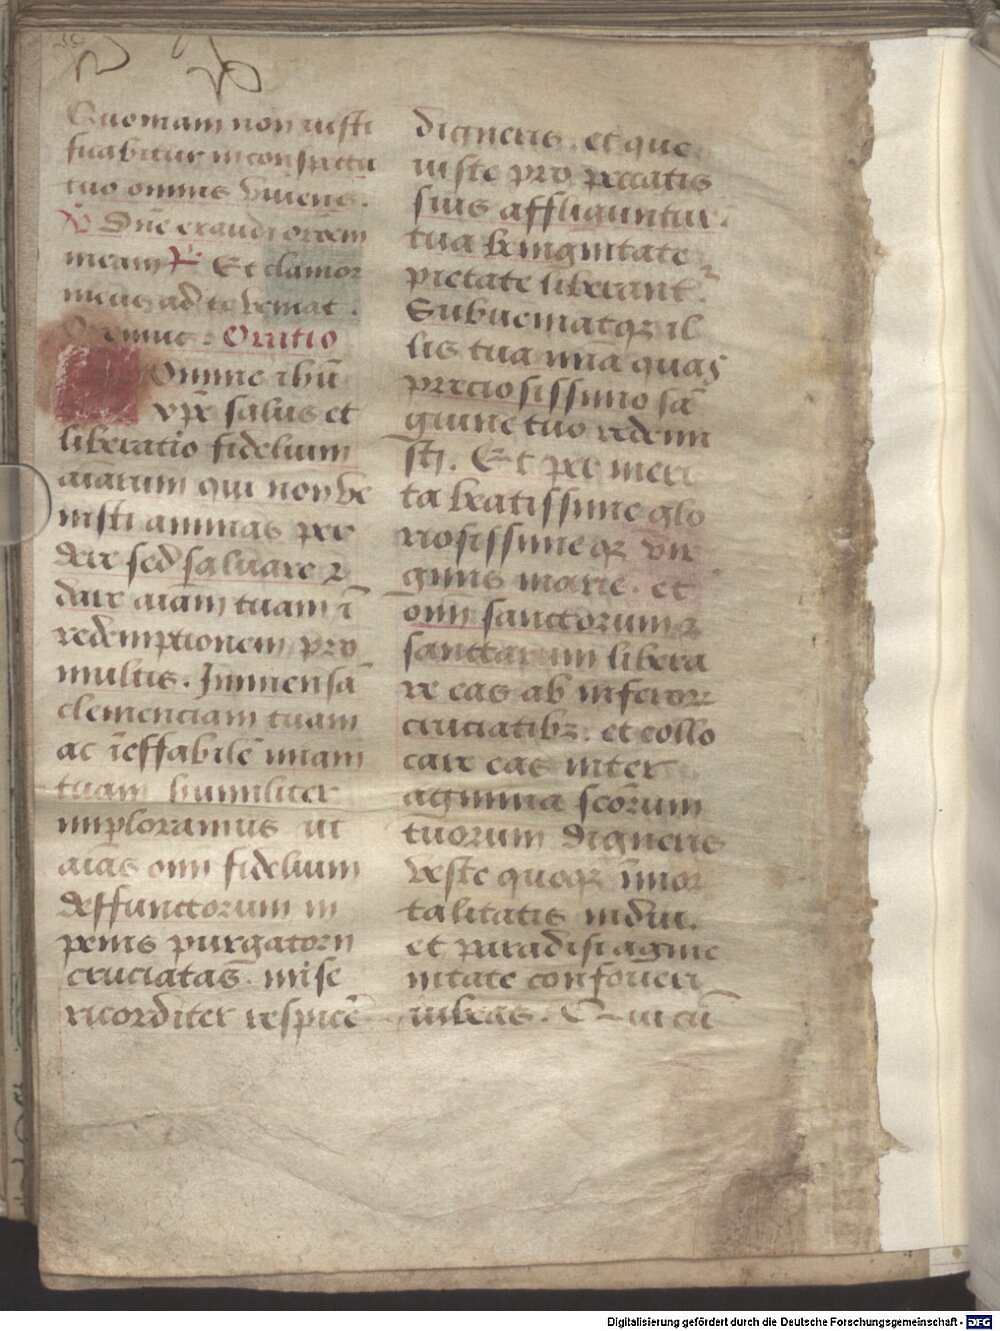 Quoniam non iusti
ficabitur in conspectu
tuo omnis viuens.
V Dne exaudi orōem
meam R Et clamor
meus ad te veniat.
Oremus. Oratio
Domine ihū
xpe salus et
liberatio fidelium
aiarum qui non ve
nisti animas per
dere sed saluare ⁊
dare aiam tuam ī
redemptionem pro
multis. Inmensā
clemenciam tuam
ac īeffabilē miam
tuam humiliter
imploramus ut
aias omī fidelium
deffunctorum in
penis purgatorii
cruciatas. mise
ricorditer respicē
digneris. et que
iuste pro peccatis
suis affliguntur.
tua benignitate
pietate liberant᷑.
Subueniatqꝫ il
lis tua mīa quas
preciosissimo sā
guine tuo redemi
sti. Et per meri
ta beatissime glo
riosissimeqꝫ vir
ginis marie. et
omī sanctorum ⁊
sanctarum libera
re eas ab inferorꝝ
cruciatibꝫ. et collo
care eas inter
agmina scōrum
tuorum digneris
veste quoqꝫ īmor
talitatis indui.
et paradisi ame
nitate confoueri
iubeas. Qui cū
Digitalisierung gefördert durch die Deutsche Forschungsgemeinschaft - DFG